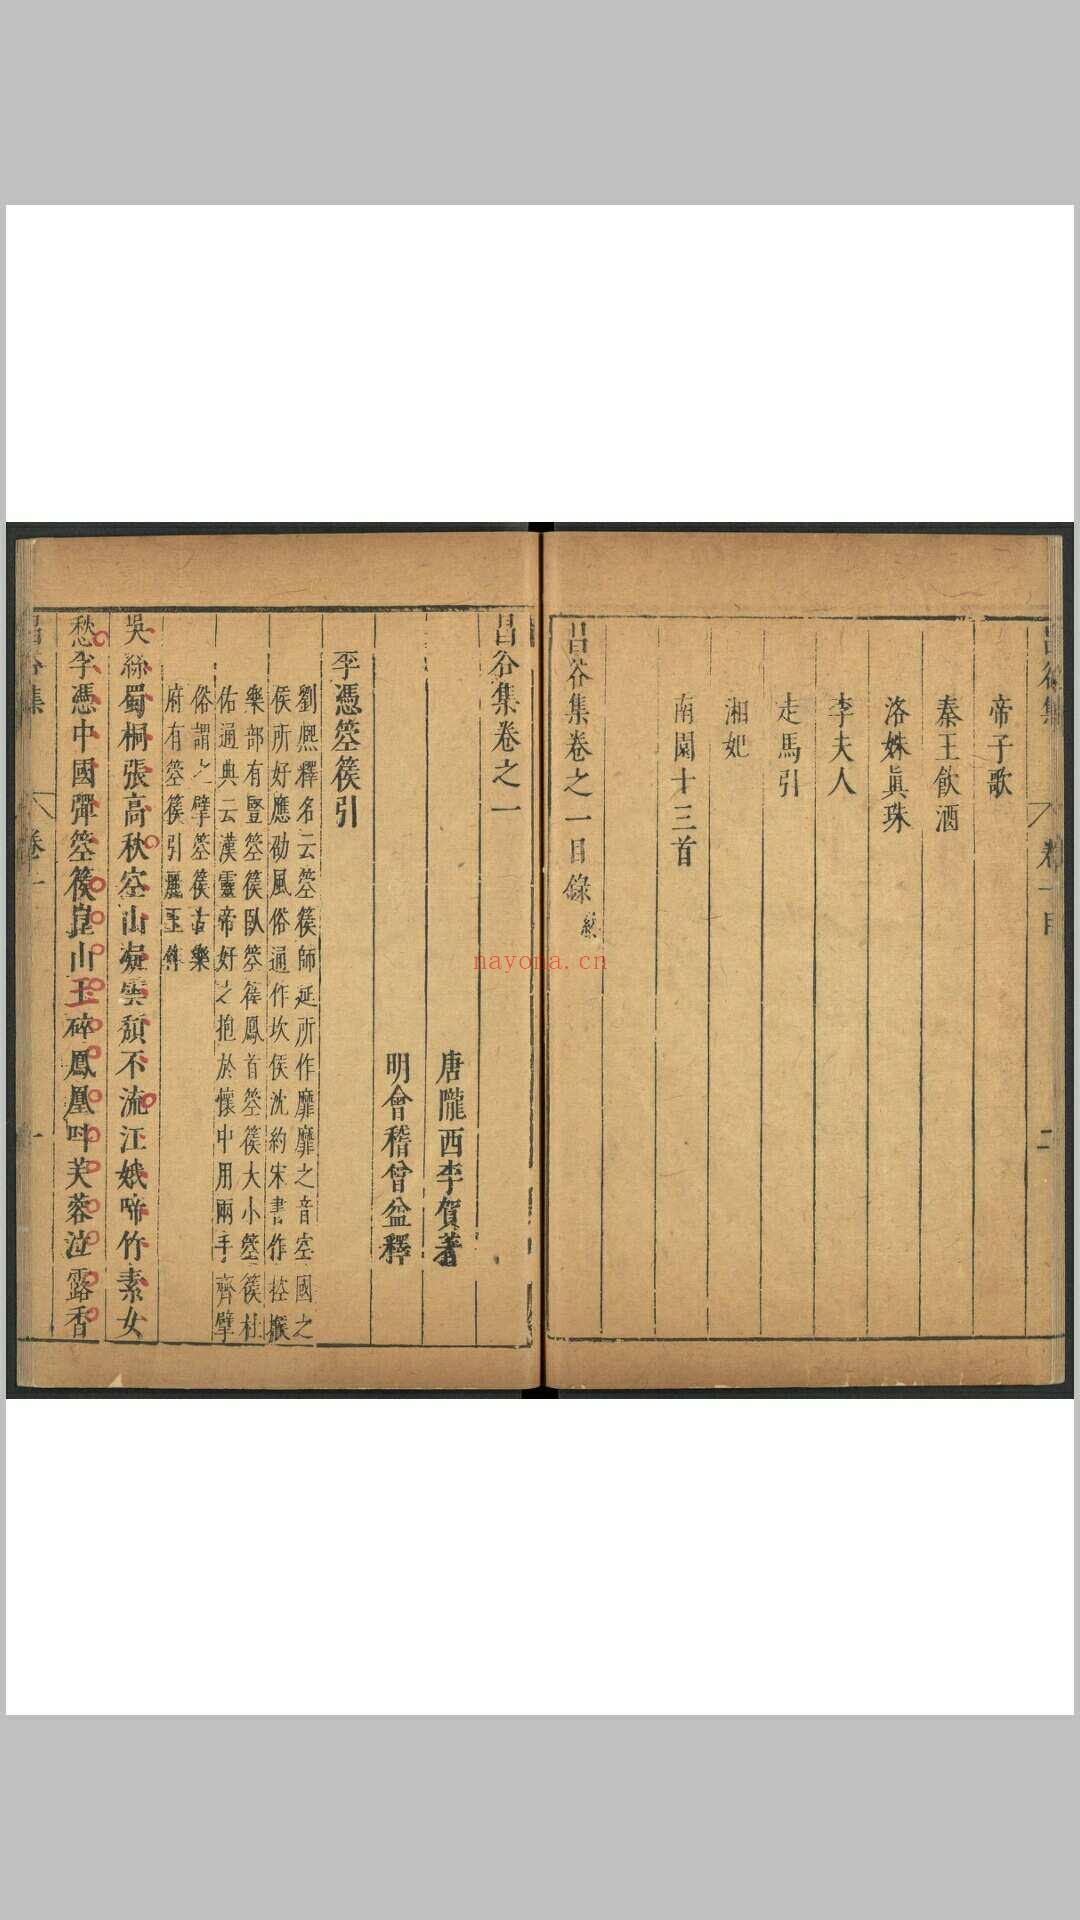 帝子歌
秦王飲酒
洛姝眞珠
李夫人
走馬引
湘妃
南園十三首
昌谷集卷之一目錄 終
二
昌谷集卷之一
唐隴西李賀著
明會稽曾益釋
李憑箜篌引
劉熙釋名云箜篌師延所作靡靡之音空國之
侯所好應劭風俗通作坎侯沈約宋書作
樂部有豎箜篌臥箜篌鳳首箜篌大小箜篌杜
佑通典云漢靈帝好之抱於懷中用兩手齊擘
俗謂之擘箜篌古樂
府有箜篌引麗玉作
吳絲蜀桐張高秋空山凝雲頹不流江娥啼竹素女
愁李憑中國彈箜篌崑山玉碎鳳凰呌芙蓉泣露香
昌谷集 卷一 一
nayona.cn